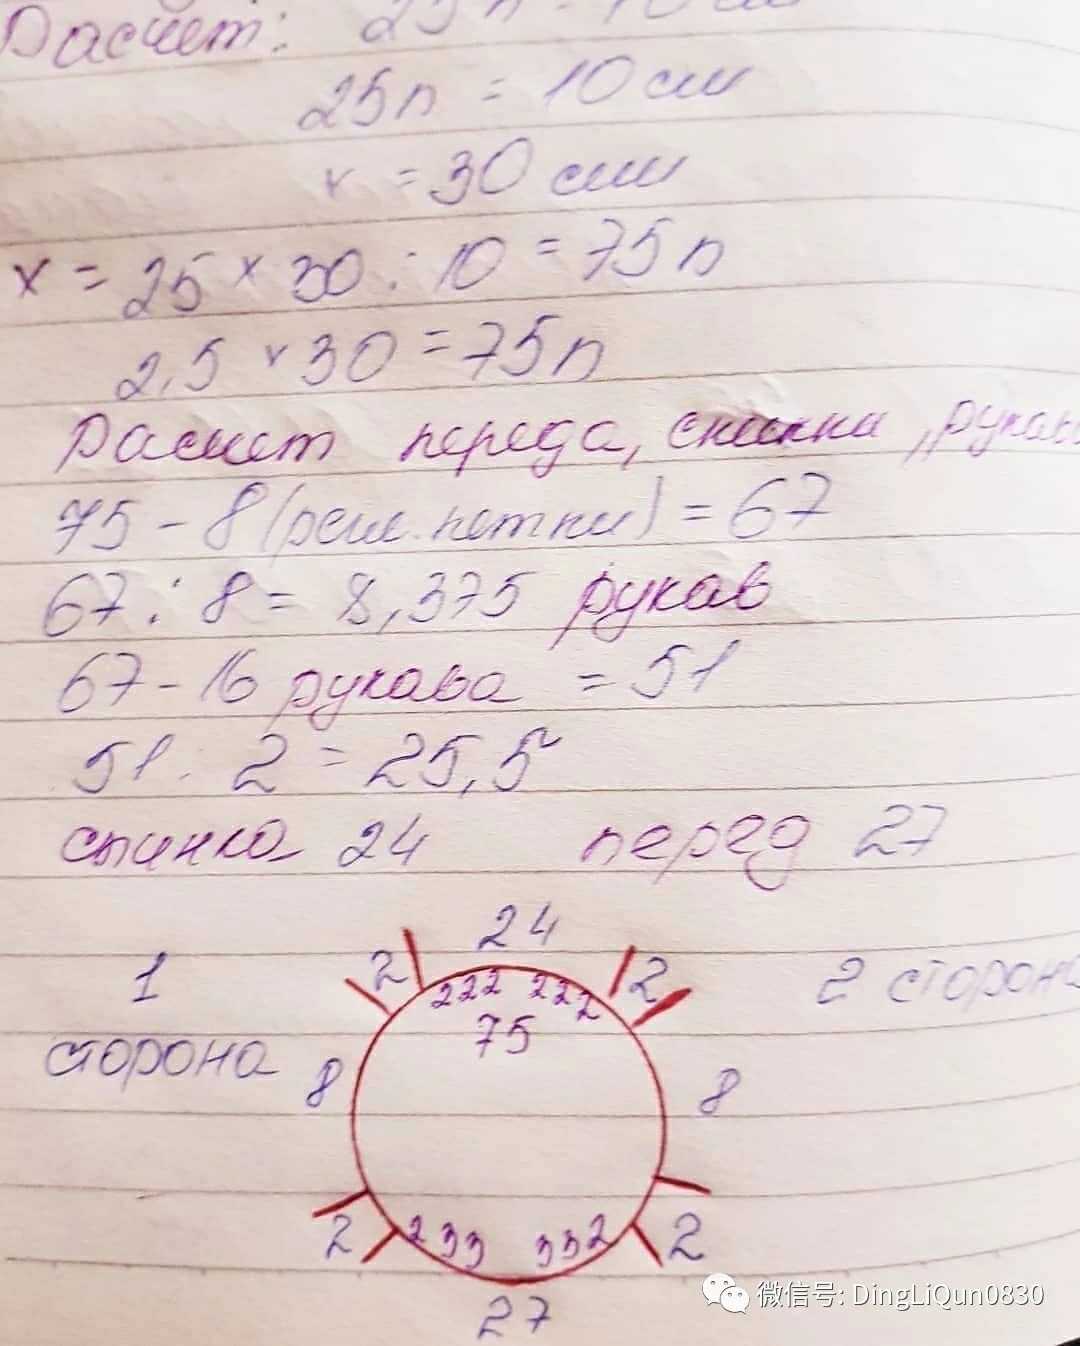 Расчет: 25п = 10 см
25п = 10 см
x = 30 см
x = 25 × 30 : 10 = 75п
2,5 × 30 = 75п
Расчет переда, спинки, рукава
75 - 8 (регл. петли) = 67
67 : 8 = 8,375 рукав
67 - 16 рукава = 51
51 : 2 = 25,5
спинка 24 перед 27
24
1 2 2 2 сторона
222 222
75
сторона 8 8
2 233 332 2
27
微信号: DingLiQun0830